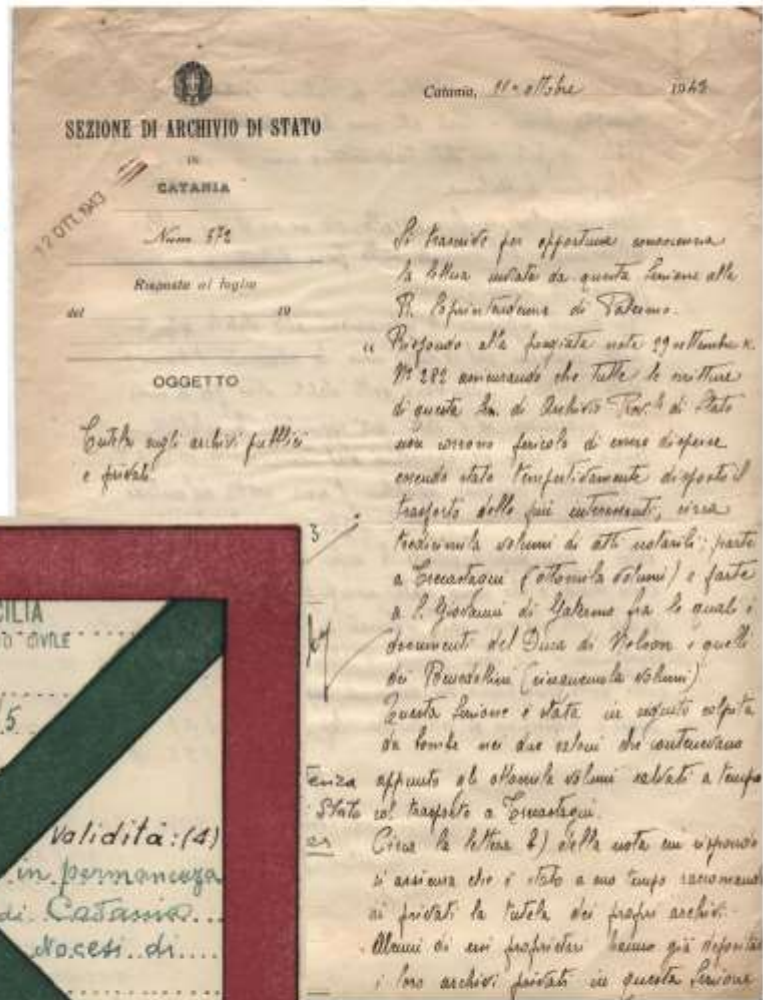 Catania, 11 ottobre 1943
SEZIONE DI ARCHIVIO DI STATO
IN
CATANIA
12 OTT. 1943
Num 572
Risposta al foglio
del 19
OGGETTO
Tutela sugli archivi pubblici
e privati
Si trasmette per opportuna conoscenza
la lettera inviata da questa Sezione alla
R. Soprintendenza di Palermo.
" Rispondo alla pregiata nota 29 settembre
N° 282 assicurando che tutte le scritture
di questa Sez. di Archivio Prov.le di Stato
non corrono pericolo di essere disperse
essendo stato tempestivamente disposto il
trasporto delle più interessanti, circa
tredicimila volumi di atti notarili: parte
a Trecastagni (ottomila volumi) e parte
a S. Giovanni di Galermo fra le quali i
documenti del Duca di Nelson e quelli
dei Benedettini (cinquemila volumi)
Questa Sezione è stata in seguito colpita
da bombe nei due saloni che contenevano
appunto gli ottomila volumi salvati a tempo
col trasporto a Trecastagni.
Circa la lettera b) della nota cui rispondo
si assicura che è stato a suo tempo raccomand
ai privati la tutela dei propri archivi.
Alcuni di essi proprietari hanno già deposita
i loro archivi privati in questa Sezione
3
enza
Stato
CILIA
CIVILE
5
Validità: (4)
in permanenza
di Catania
Diocesi di